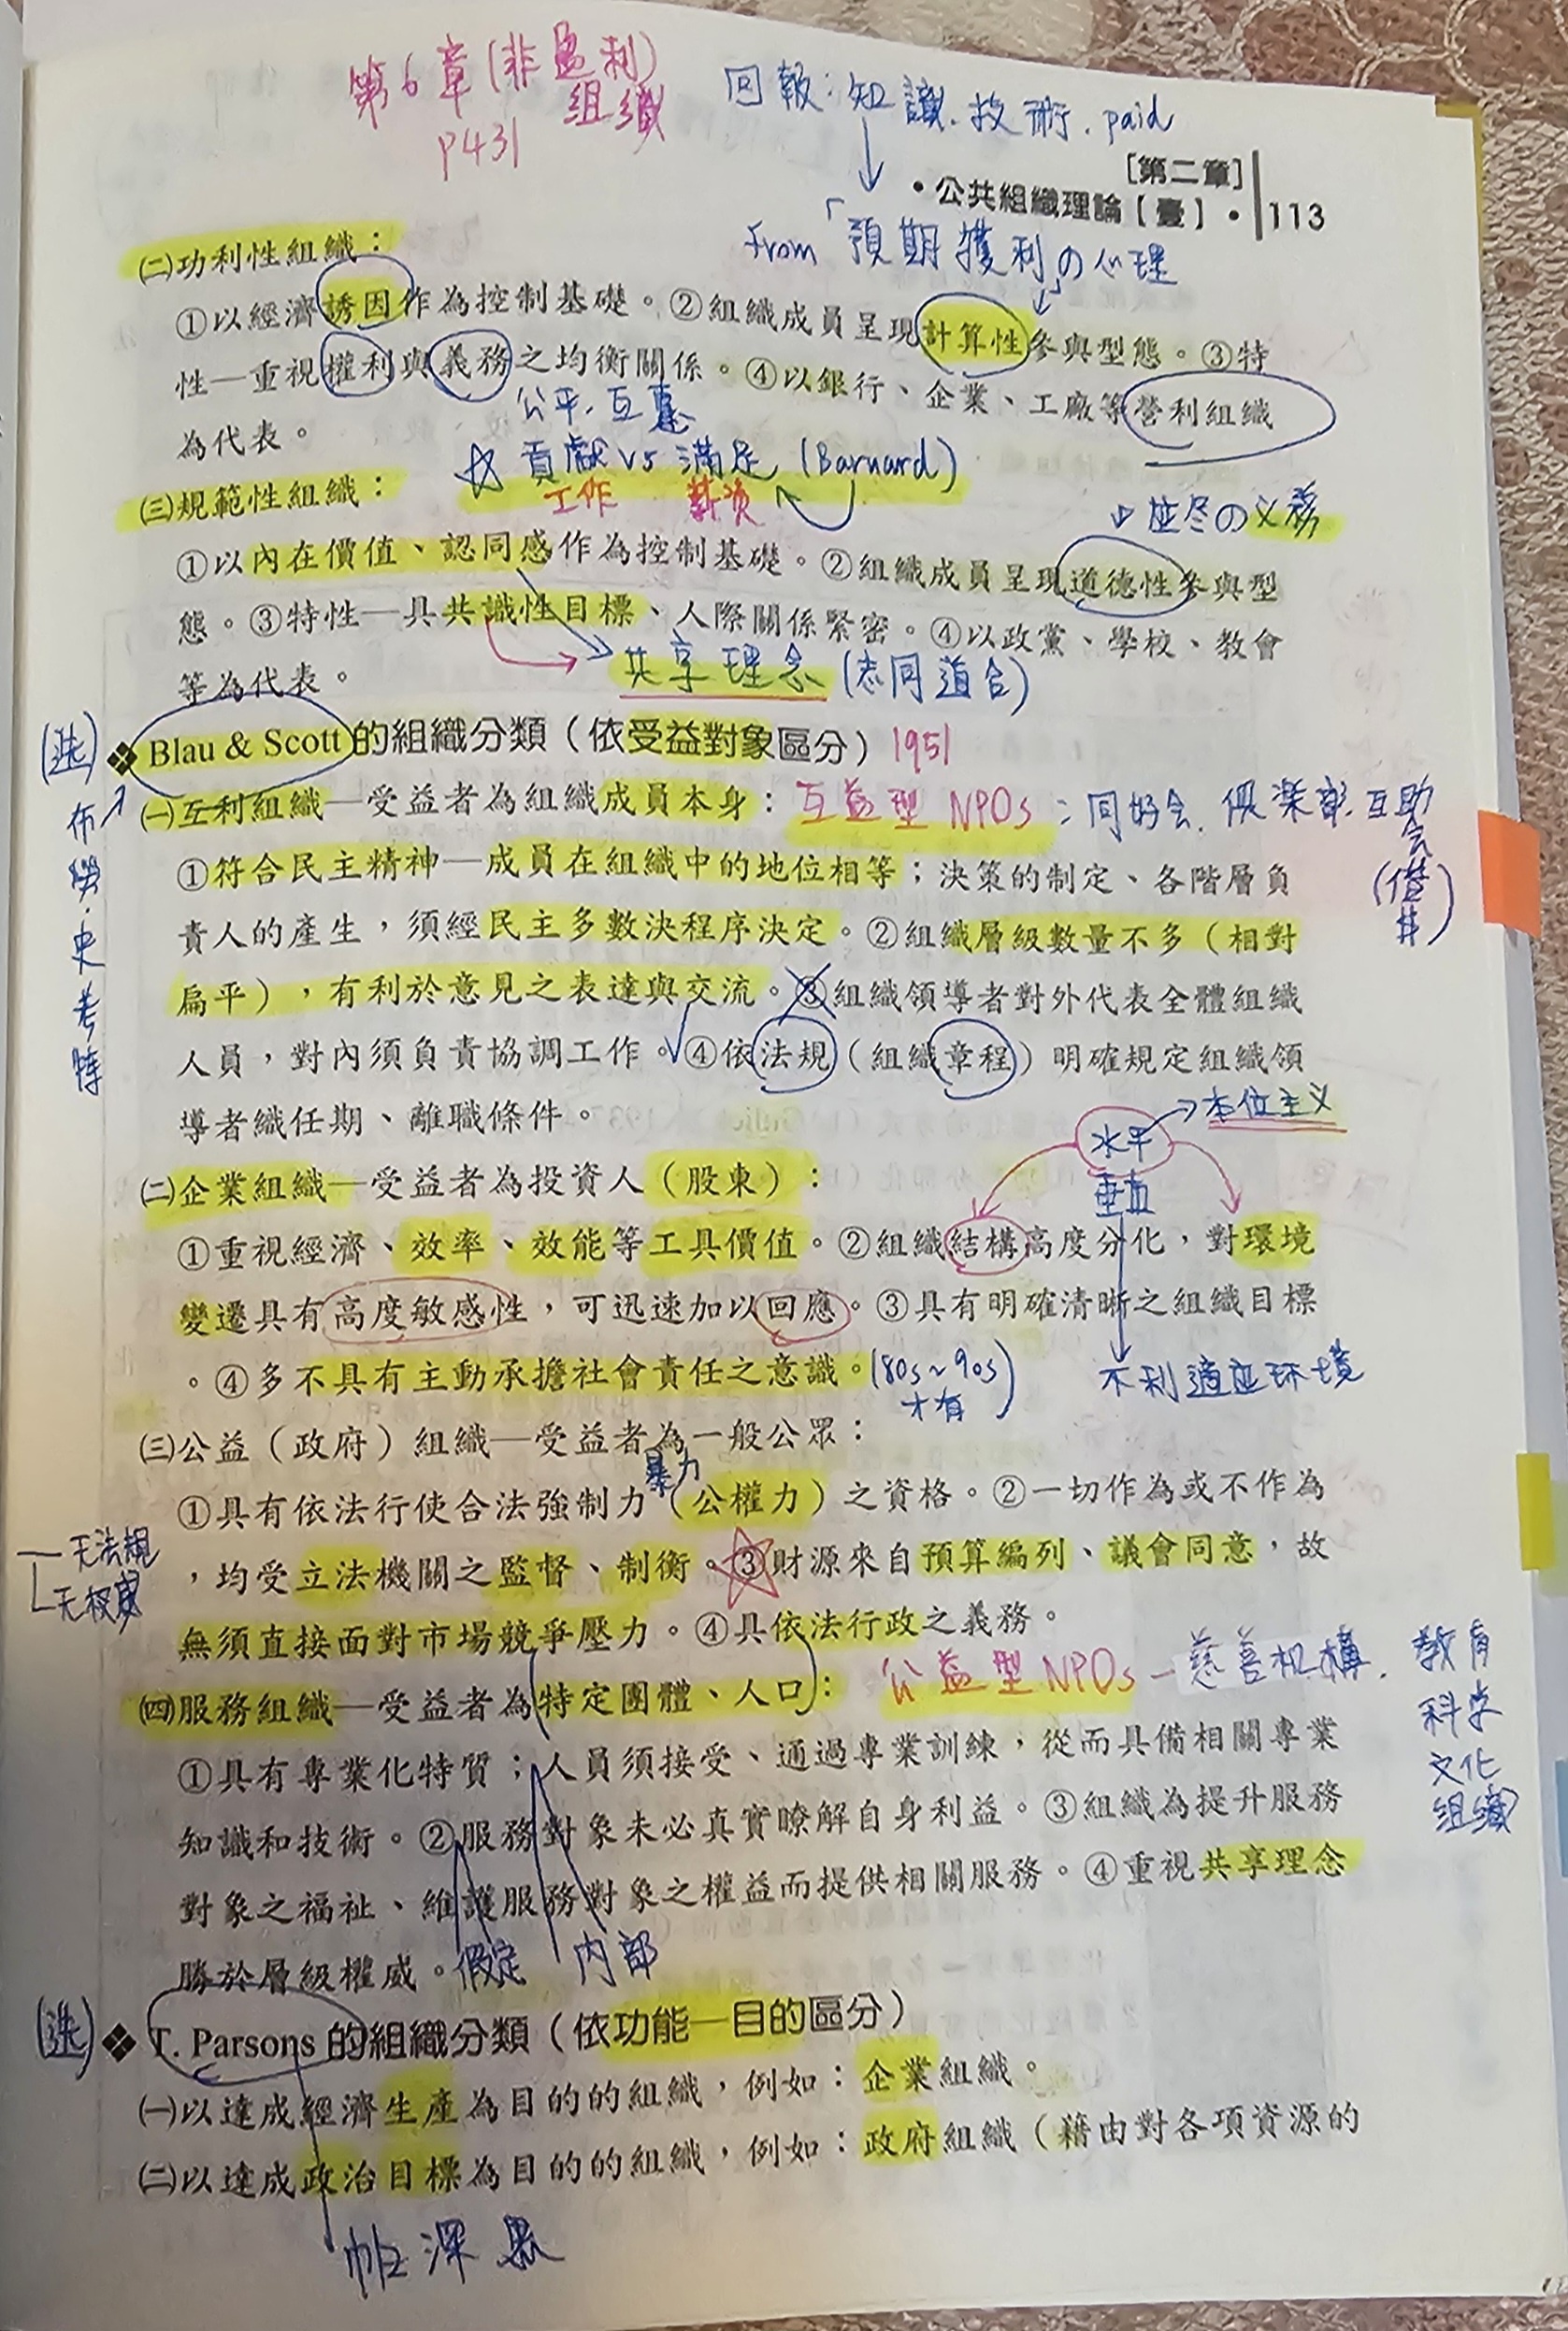 第6章(非盈利)
組織
P431
回報：知識、技術、paid
[第二章]
•公共組織理論【壹】• 113
From「預期獲利の心理
㈡功利性組織：
①以經濟誘因作為控制基礎。②組織成員呈現計算性參與型態。③特
性—重視權利與義務之均衡關係。④以銀行、企業、工廠等營利組織
公平、互惠
為代表。
☆貢獻 vs 滿足 (Barnard)
工作 薪資
㈢規範性組織：
應尽の义務
①以內在價值、認同感作為控制基礎。②組織成員呈現道德性參與型
態。③特性—具共識性目標、人際關係緊密。④以政黨、學校、教會
共享理念(志同道合)
等為代表。
(選)
❖ Blau & Scott的組織分類（依受益對象區分）1951
佈勞、史考特
㈠互利組織—受益者為組織成員本身：互益型 NPOs：同好会、俱楽部、互助会
①符合民主精神—成員在組織中的地位相等；決策的制定、各階層負
責人的產生，須經民主多數決程序決定。②組織層級數量不多（相對
扁平），有利於意見之表達與交流。③組織領導者對外代表全體組織
人員，對內須負責協調工作。④依法規（組織章程）明確規定組織領
導者織任期、離職條件。
水平 本位主义
垂直
㈡企業組織—受益者為投資人（股東）：
①重視經濟、效率、效能等工具價值。②組織結構高度分化，對環境
變遷具有高度敏感性，可迅速加以回應。③具有明確清晰之組織目標
。④多不具有主動承擔社會責任之意識。(80s~90s
才有)
不利適应环境
㈢公益（政府）組織—受益者為一般公眾：
暴力
①具有依法行使合法強制力（公權力）之資格。②一切作為或不作為
无法規
，均受立法機關之監督、制衡。③財源來自預算編列、議會同意，故
無須直接面對市場競爭壓力。④具依法行政之義務。
公益型NPOs—慈善机構、教育
科学
文化
組織
㈣服務組織—受益者為特定團體、人口：
①具有專業化特質；人員須接受、通過專業訓練，從而具備相關專業
知識和技術。②服務對象未必真實瞭解自身利益。③組織為提升服務
對象之福祉、維護服務對象之權益而提供相關服務。④重視共享理念
勝於層級權威。
假定 内部
(選)
❖ T. Parsons的組織分類（依功能—目的區分）
㈠以達成經濟生產為目的的組織，例如：企業組織。
㈡以達成政治目標為目的的組織，例如：政府組織（藉由對各項資源的
帕深思